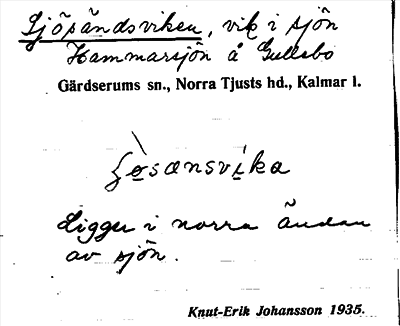 Sjösändsviken, vik i sjön
Hammarsjön å Gullsbo
Gärdserums sn., Norra Tjusts hd., Kalmar l.
ʃö̀sansvi̱ka
Ligger i norra ändan
av sjön.
Knut-Erik Johansson 1935.